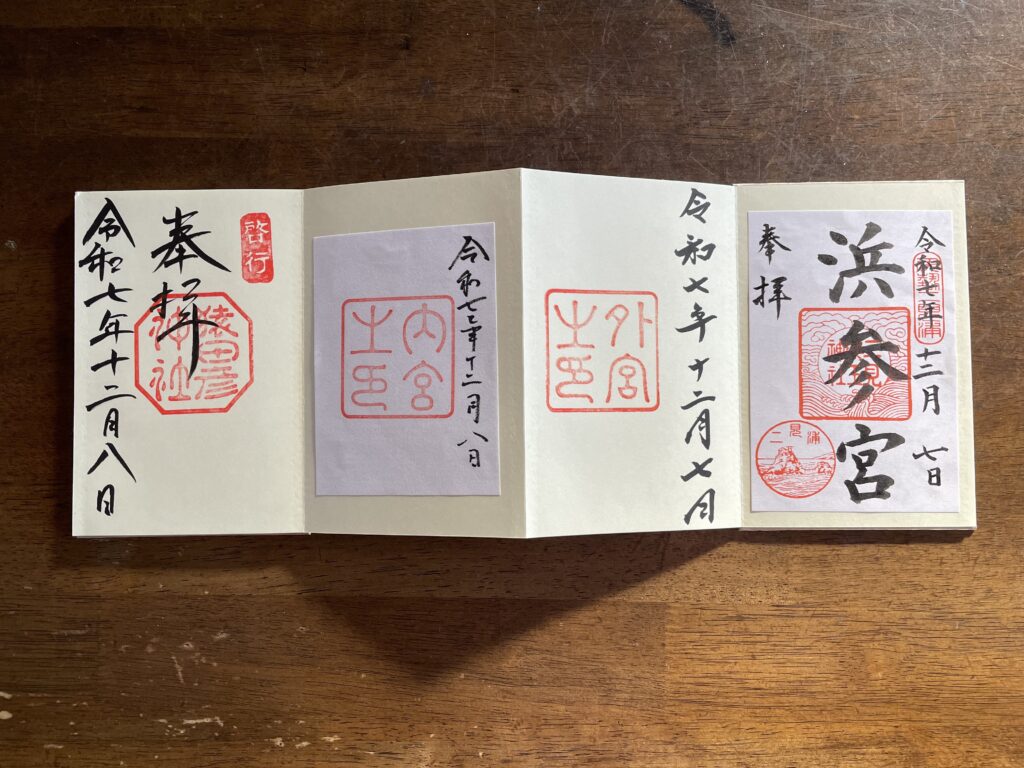 令和七年十二月七日
浜参宮
奉拝
二見浦
令和七年十二月七日
外宮
之印
令和七年十二月八日
内宮
之印
啓行
奉拝
猿田彦
神社
令和七年十二月八日